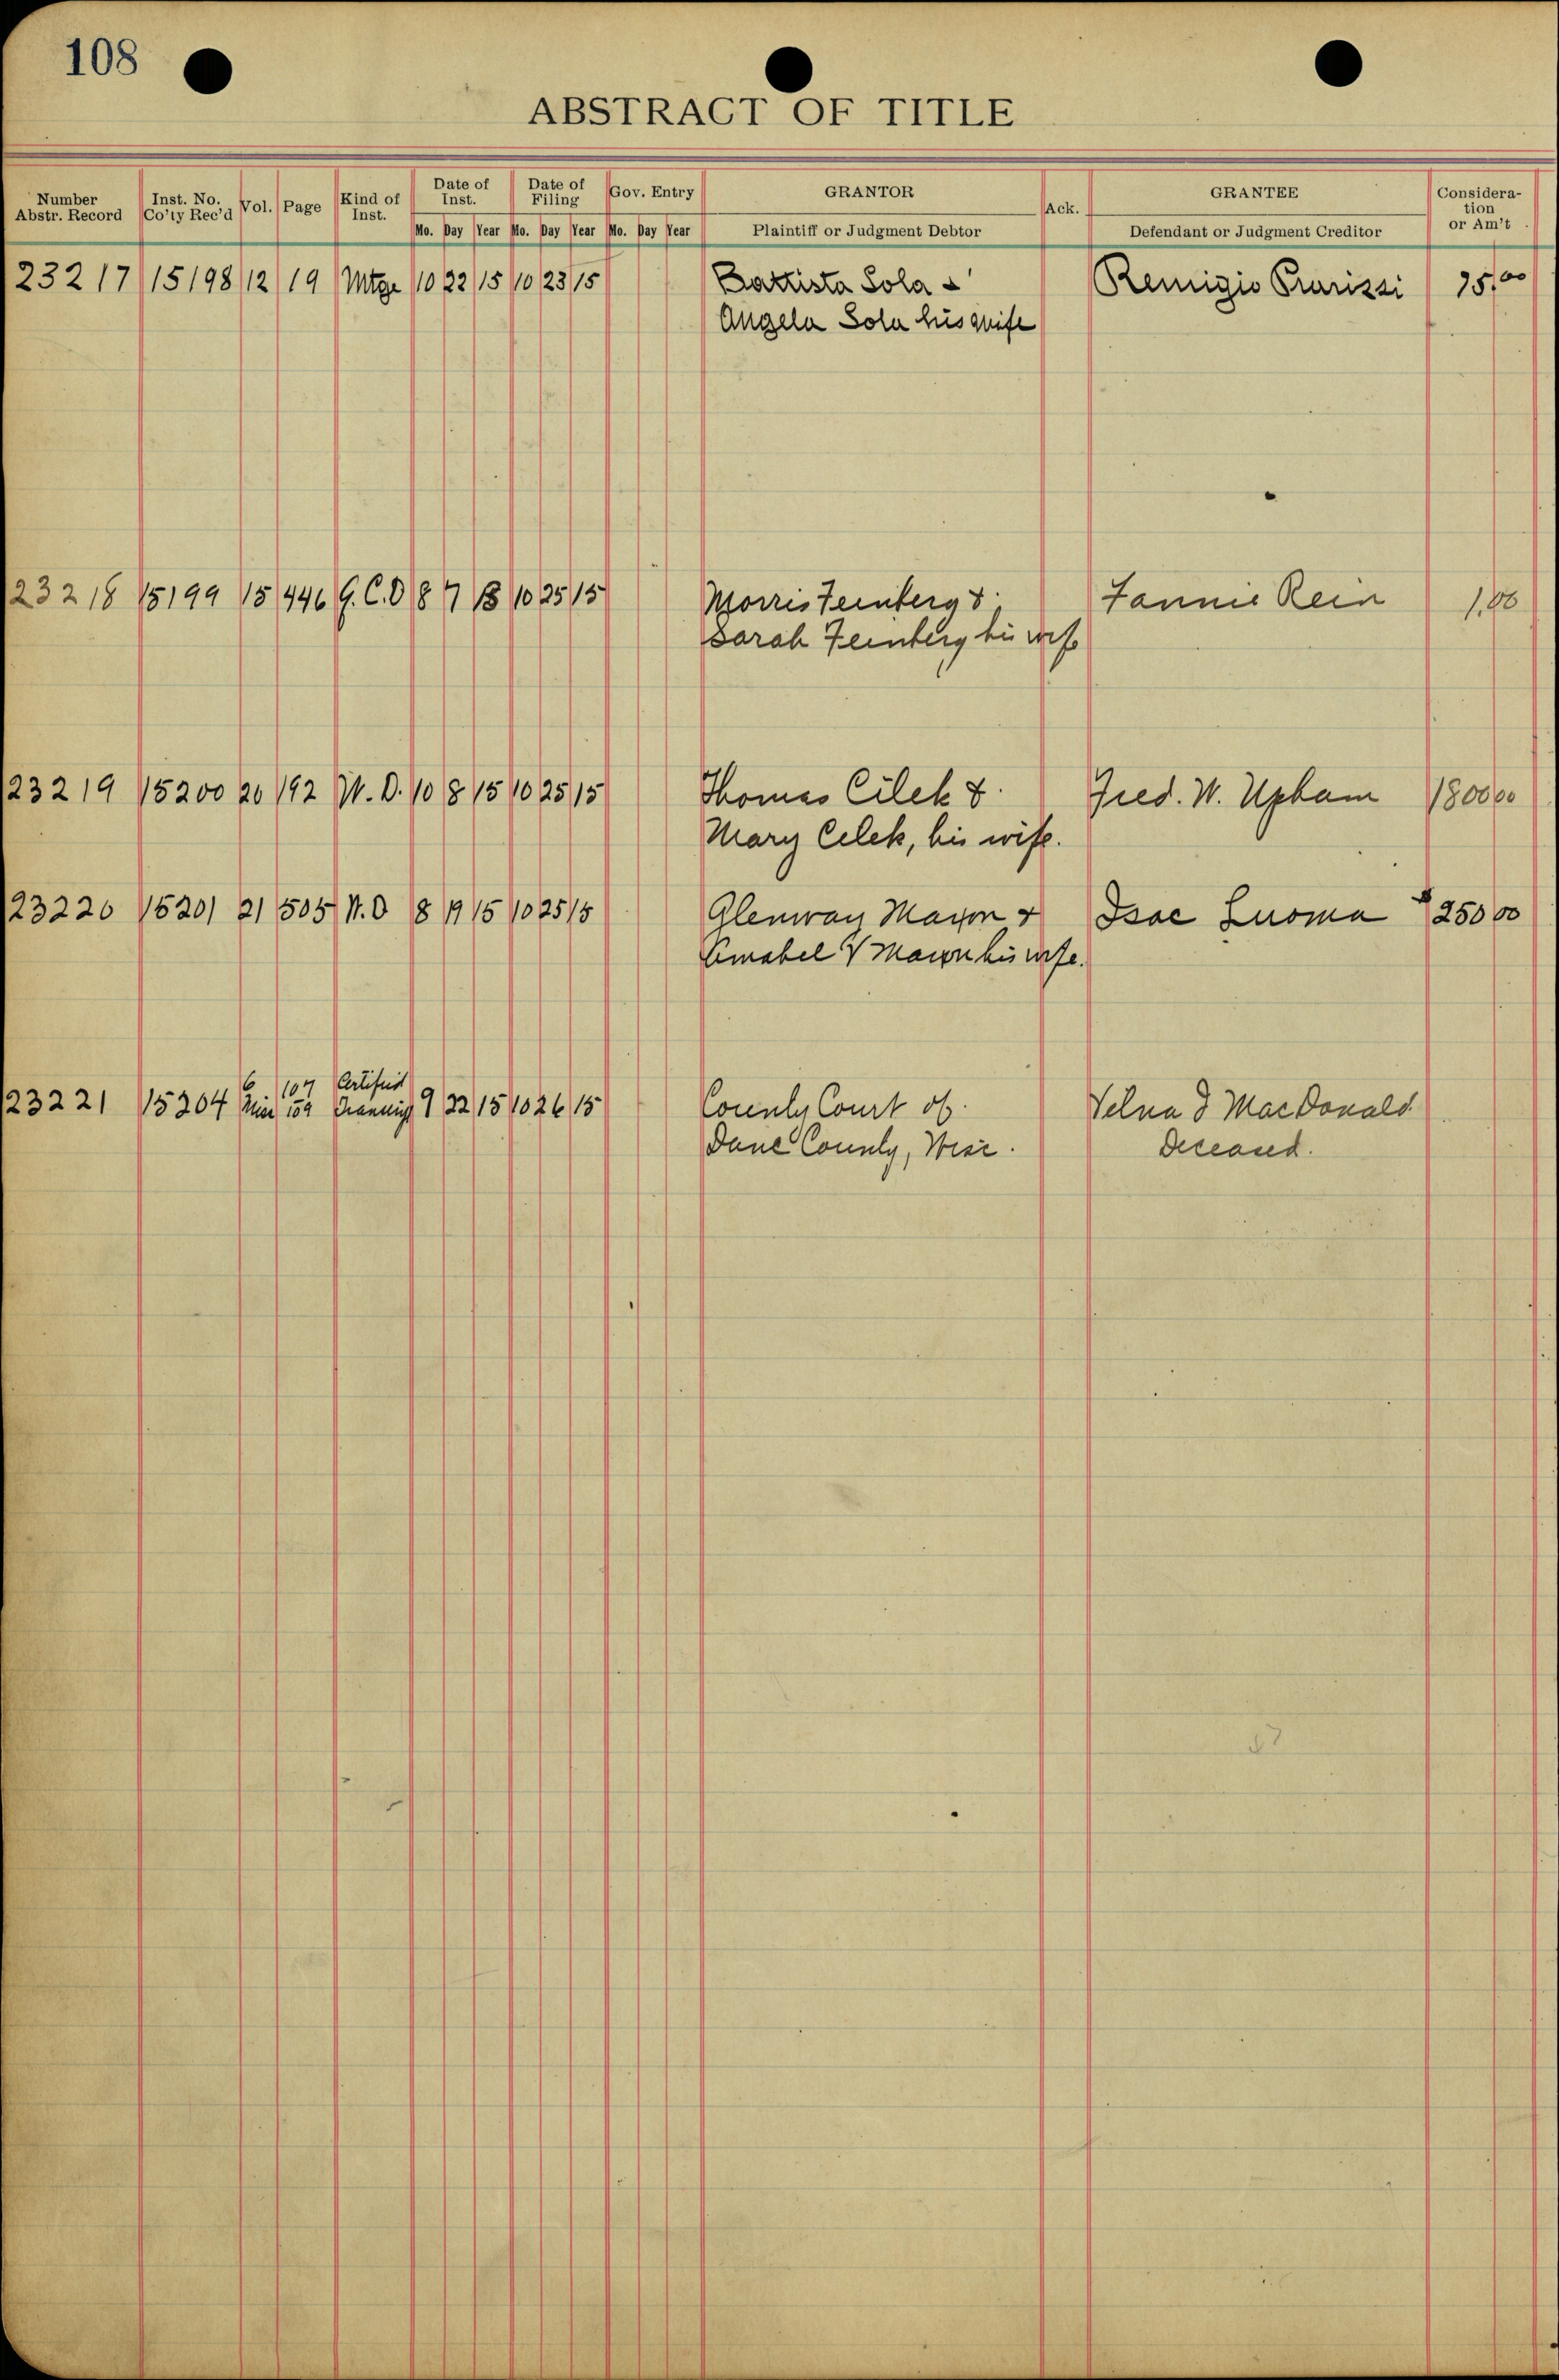 108
ABSTRACT OF TITLE
Number Abstr. Record Inst. No. Co'ty Rec'd Vol. Page Kind of Inst. Date of Inst. Date of Filing Gov. Entry GRANTOR Ack. GRANTEE Consideration or Am't
Mo. Day Year Mo. Day Year Mo. Day Year Plaintiff or Judgment Debtor Defendant or Judgment Creditor
23217 15198 12 19 Mtge 10 22 15 10 23 15 Battista Sola & Remigio 75,00
Angela Sola his wife
23218 15199 15 446 Q.C.D 8 7 15 10 25 15 Morris Feinberg & Fannie Rein 1,00
Sarah Feinberg his wife
23219 15200 20 192 W.D. 10 8 15 10 25 15 Thomas Cilek & Fred. W. Upham 1800 00
Mary Cilek, his wife.
23220 15201 21 505 W.D 8 19 15 10 25 15 Glenway Maxon & Isac Luoma $250 00
Amabel V Maxon his wife.
6 107 Certified
23221 15204 Mis 159 9 22 15 10 26 15 County Court of Velna I MacDonald
Dane County, Wisc. Deceased.